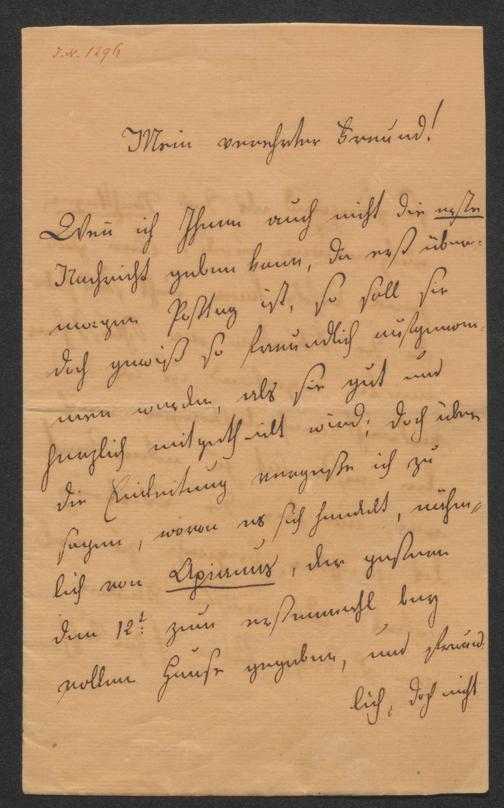 J.N. 1296
Mein verehrter Freund!
Weñ ich Ihnen auch nicht die erste
Nachricht geben kann, da erst über-
morgen Posttag ist, so soll sie
doch gewiß so freundlich aufgenom-
men werden, als sie gut und
herzlich mitgetheilt wird; doch über
die Einleitung vergesse ich zu
sagen, wovon es sich handelt, nähm-
lich von, der gestern
den 12t: zum erstenmahl bey
vollem Hause gegeben, und freund-
lich, doch nicht